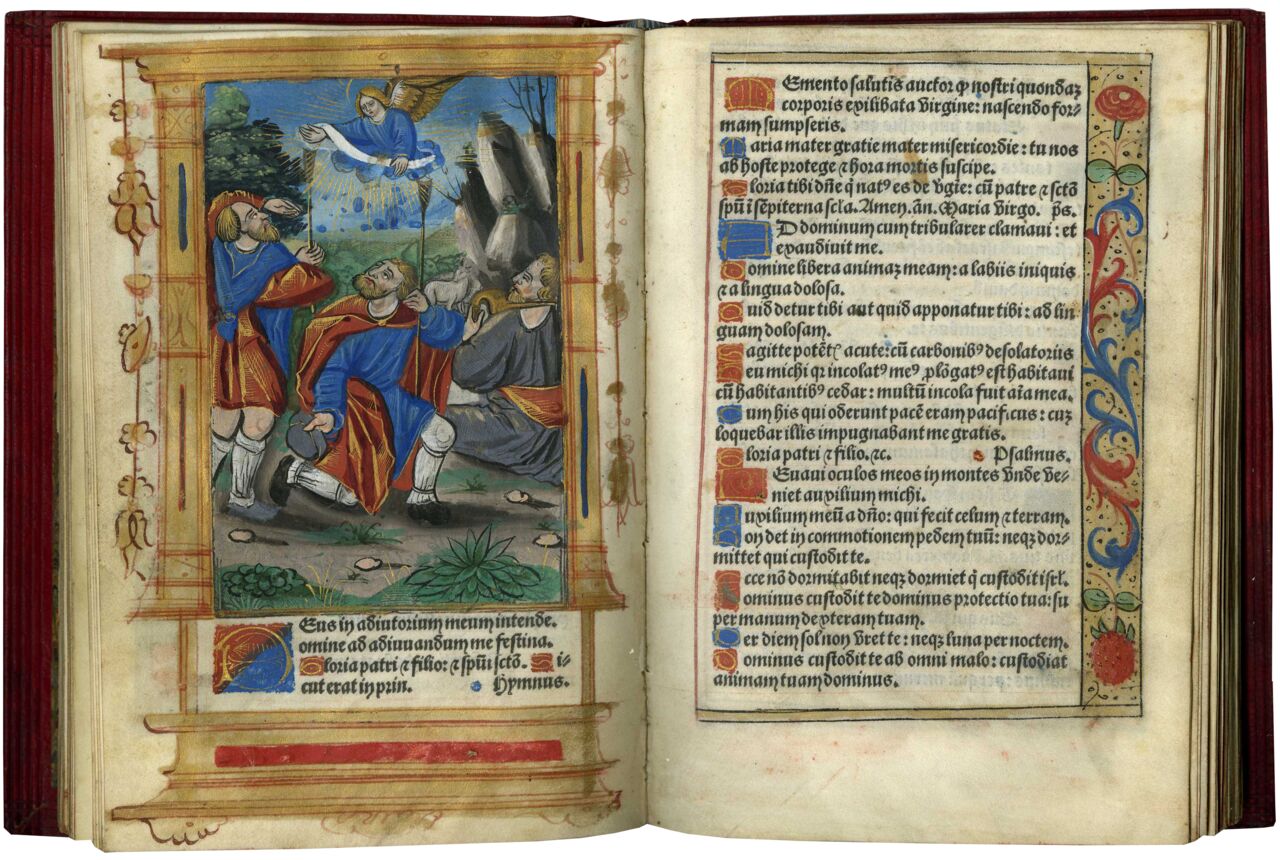 Deus in adiutorium meum intende.
Domine ad adiuvandum me festina.
Gloria patri ⁊ filio: ⁊ spūi scto. Si-
cut erat in prin. Hymnus.
Memento salutis auctor ꝙ nostri quondaꝫ
corporis ex ilibata virgine: nascendo for-
mam sumpseris.
Maria mater gratie mater misericordie: tu nos
ab hoste protege ⁊ hora mortis suscipe.
Gloria tibi dñe q̇ natꝰ es de v̇gie: cū patre ⁊ sctō
spū ī sēpiterna scla. Amen. añ. Maria virgo. p̄s.
AD dominum cum tribularer clamavi: et
exaudivit me.
Domine libera animaꝫ meam: a labiis iniquis
⁊ a lingua dolosa.
Quid detur tibi aut quid apponatur tibi: ad lin
guam dolosam.
Sagitte potēt acute: cū carbonibꝰ desolatoriis
Heu michi qꝛ incolatꝰ meꝰ ꝓlōgatꝰ est habitavi
cū habitantibꝰ cedar: multū incola fuit aīa mea.
Cum his qui oderunt pacē eram pacificus: cuꝫ
loquebar illis impugnabant me gratis.
Gloria patri ⁊ filio. ⁊c. Psalmus.
LEvavi oculos meos in montes vnde ve-
niet auxilium michi.
Auxilium meū a dño: qui fecit celum ⁊ terram.
Non det in commotionem pedem tuū: neqꝫ dor-
mittet qui custodit te.
Ecce nō dormitabit neqꝫ dormiet q̇ custodit isrl.
Dominus custodit te dominus protectio tua: su
per manum dexteram tuam.
Per diem sol non vret te: neqꝫ luna per noctem.
Dominus custodit te ab omni malo: custodiat
animam tuam dominus.